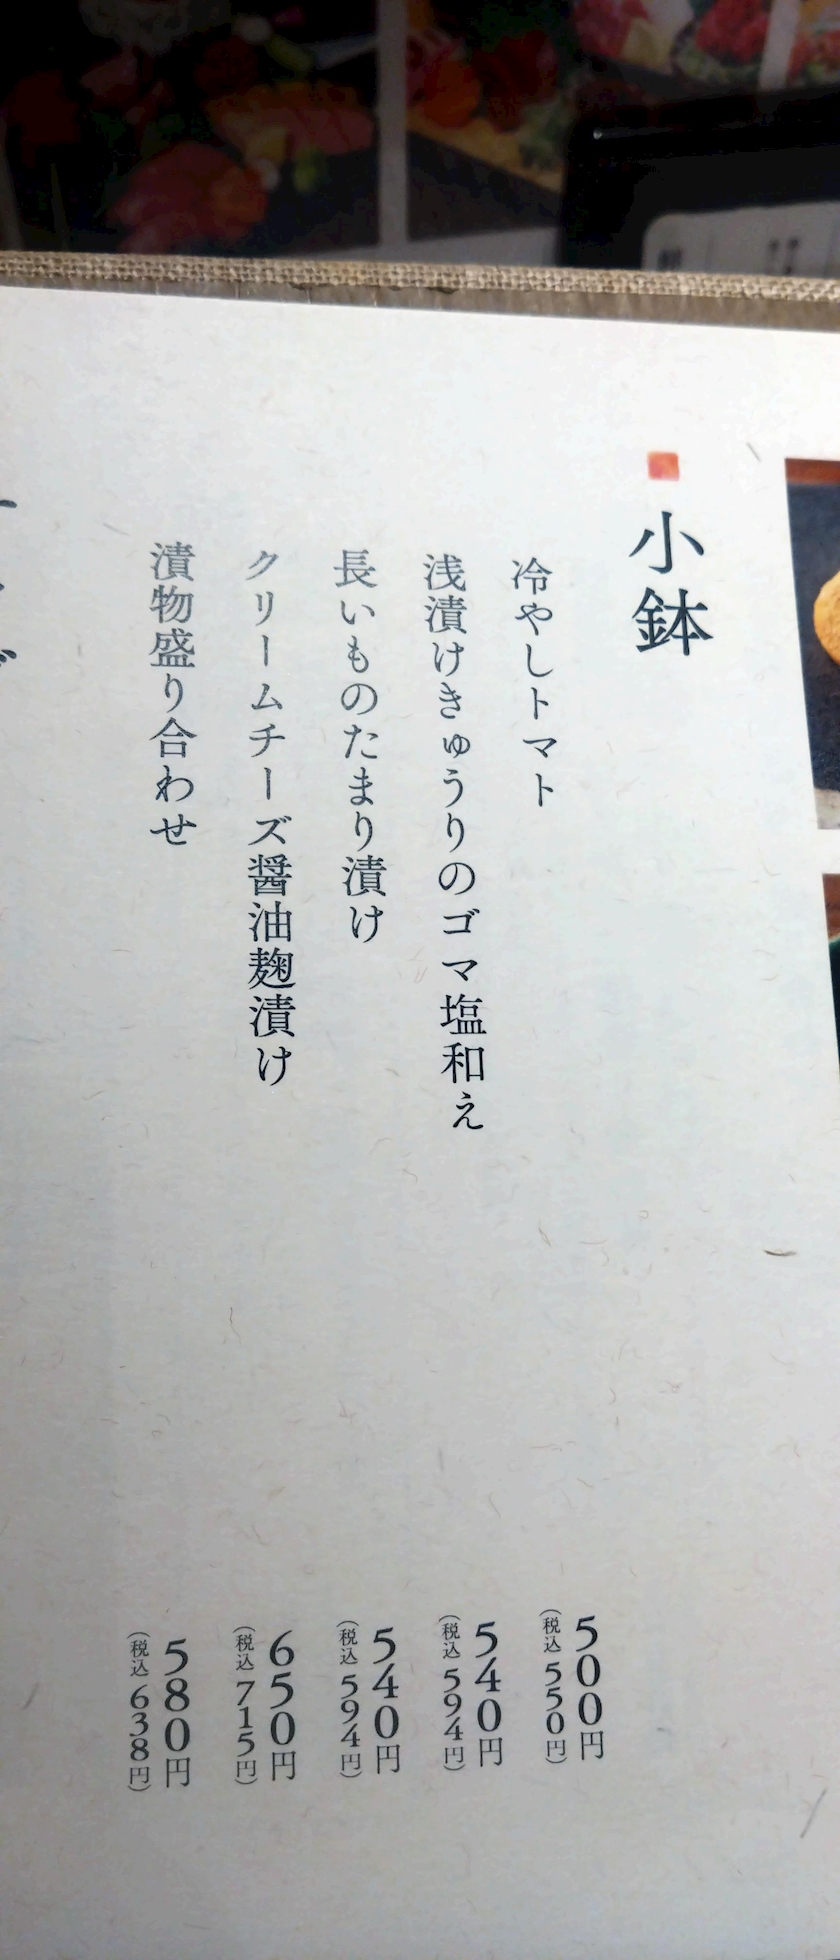 小鉢
冷やしトマト
500円
(税込550円)
浅漬けきゅうりのゴマ塩和え
540円
(税込594円)
長いものたまり漬け
540円
(税込594円)
クリームチーズ醤油麹漬け
650円
(税込715円)
漬物盛り合わせ
580円
(税込638円)